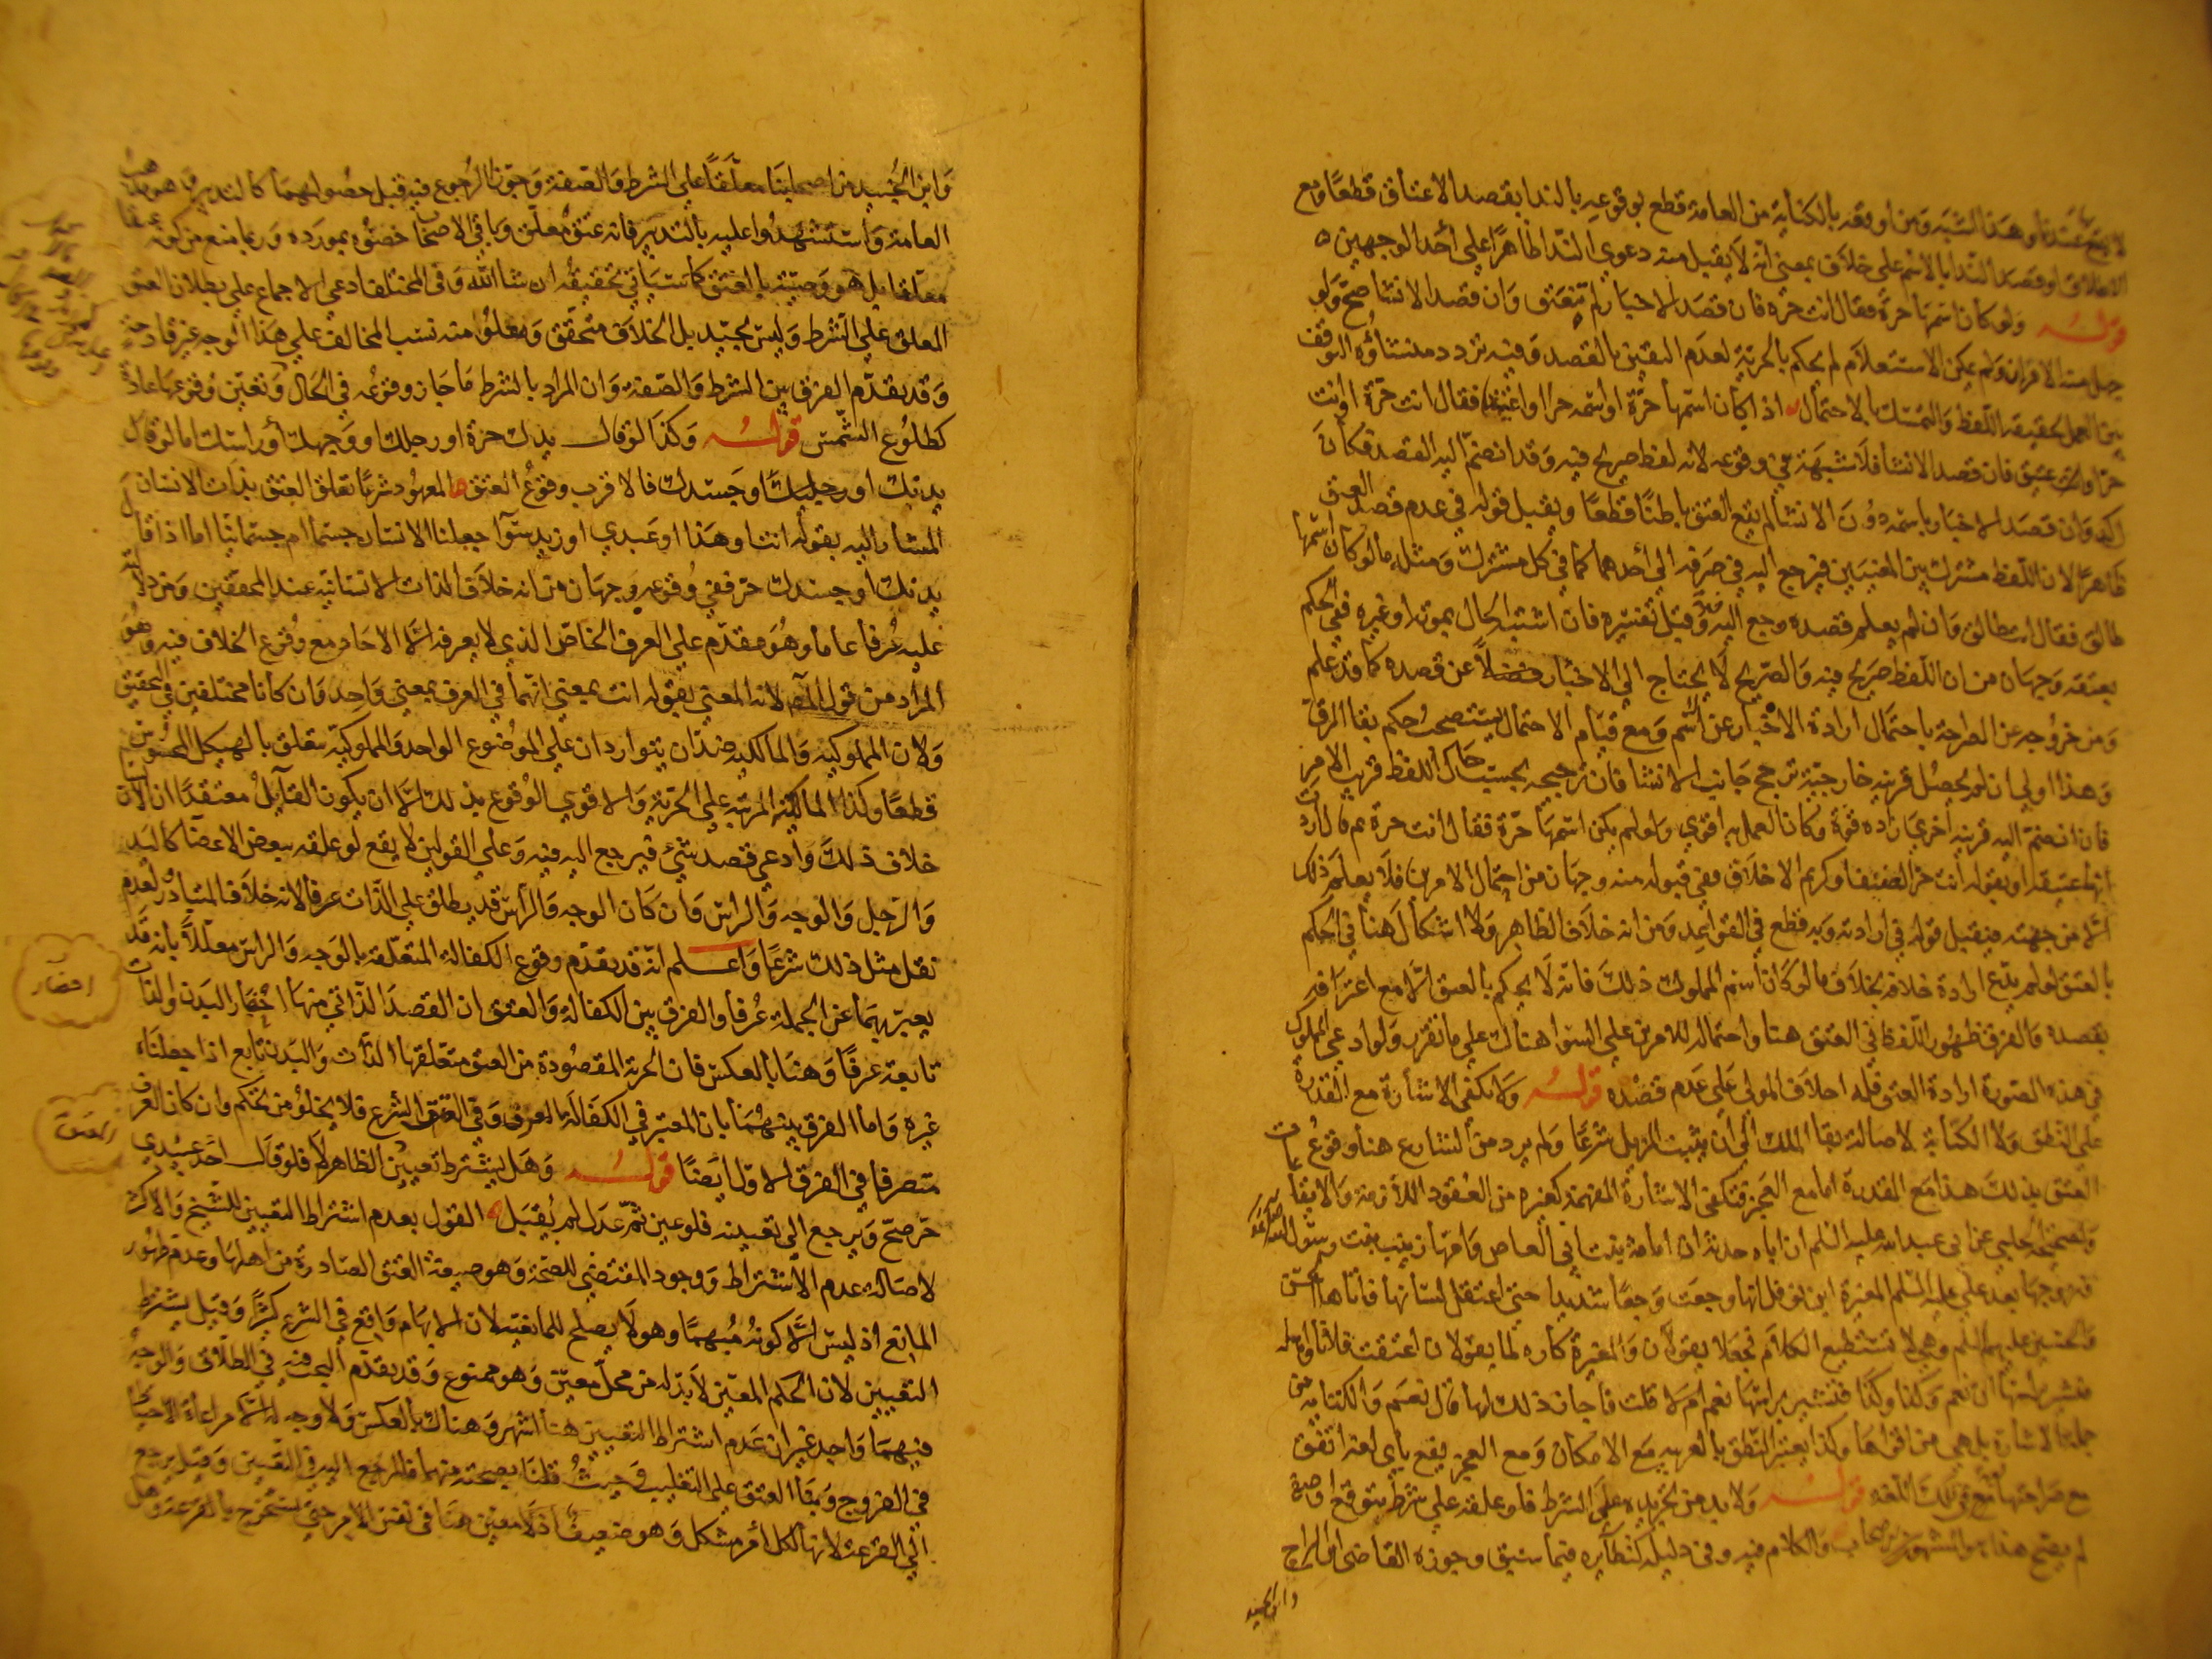 لا يقع عندنا وهذا الشبه ومن اوقعه بالكناية من العامة قطع بوقوعه بالندا بقصد الاعتاق قطعا ومع
الاطلاق او قصد الندا بالاسم على خلاف بمعنى انه لا يقبل منه دعوى الندا ظاهرا على احد الوجهين
قوله ولو كان اسمها حرة فقال انت حرة فان قصد الاخبار لم تنعتق وان قصد الانشا صح ولو
جهل منه الامران ولم يمكن الاستعلام لم يحكم بالحرية لعدم اليقين بالقصد وفيه تردد منشاؤه التوقف
بين العمل بحقيقة اللفظ والتمسك بالاحتمال اذا كان اسمها حرة او اسمه حرا او عتيقا فقال انت حرة او انت
حر او انت عتيق فان قصد الانشا فلا شبهة في وقوعه لانه لفظ صريح فيه وقد انضم اليه القصد فكان
اكد وان قصد الاخبار باسمه دون الانشا لم يقع العتق باطنا قطعا ويقبل قوله في عدم قصد العتق
ظاهرا لان اللفظ مشترك بين المعنيين فيرجع اليه في صرفه الى احدهما كما في كل مشترك ومثله ما لو كان اسمها
طالق فقال انت طالق وان لم يعلم قصده رجع اليه وقبل تفسيره فان اشتبه الحال بموته او غيره ففي الحكم
بعتقه وجهان من ان اللفظ صريح فيه والصريح لا يحتاج الى الاخبار فضلا عن قصده كما قد علم
ومن خروجه عن الصراحة باحتمال ارادة الاخبار عن الاسم ومع قيام الاحتمال يستصحب حكم بقا الرق
وهذا اولى ان لم يحصل قرينة خارجية ترجح جانب الانشا فان ترجيحه بحسب حال اللفظ قريب الامر
فان انضم اليه قرينة اخرى زاده قوة وكان العمل به اقوى ولو لم يكن اسمها حرة فقال انت حرة ثم قال اردت
انها عفيفة او بقوله انت حر العفيف او كريم الاخلاق ففي قبوله منه وجهان من احتمال الامرين فلا يعلم ذلك
الا من جهته فيقبل قوله في ارادته وبه قطع في القواعد ومن انه خلاف الظاهر ولا اشكال هنا في الحكم
بالعتق لو لم يدع ارادة خلافه بخلاف ما لو كان اسم المملوك ذلك فانه لا يحكم بالعتق الا مع اعترافه
بقصده والفرق ظهور اللفظ في العتق هنا واحتماله للامرين على السوا هناك على ما تقرر ولو ادعى المملوك
في هذه الصورة ارادة العتق فله احلاف المولى على عدم قصده قوله ولا يكفي الاشارة مع القدرة
على النطق ولا الكتابة لاصالة بقا الملك الى ان يثبت المزيل شرعا ولم يرد من الشارع هنا وقوع
العتق بذلك هذا مع القدرة اما مع العجز فتكفي الاشارة المفهمة كغيره من العقود اللازمة والايقاعات
ولصحيحة الحلبي عن ابي عبد الله عليه السلم ان اباه حدثه ان امامة بنت ابي العاص وامها زينب بنت رسول الله
فتزوجها بعد علي عليه السلم المغيرة ابن نوفل انها وجعت وجعا شديدا حتى اعتقل لسانها فاتاها الحسن
والحسين عليهما السلم وهي لا تستطيع الكلام فجعلا يقولان والمغيرة كاره لما يقولان اعتقت فلانا واهله
فتشير براسها ان نعم وكذا وكذا فتشير براسها نعم ام لا قلت فاجازا ذلك لها قال نعم والكتابة من
جملة الاشارة بل هي من اقواها وكذا يعتبر النطق بالعربية مع الامكان ومع العجز يقع باي لغة اتفق
مع صراحتها في تلك اللغة قوله ولا بد من تجريده على الشرط فلو علقه على شرط متوقع او صفة
لم يصح هذا هو المشهور بين الاصحاب والكلام فيه وفي دليله كنظايره فيما سبق وجوزه القاضي ابن البراج
وابن الجنيد
وابن الجنيد من اصحابنا معلقا على الشرط والصفة وجوزا الرجوع فيه قبل حصولهما كالتدبير وهو مذهب
العامة واستشهدوا عليه بالتدبير فانه عتق معلق وباقي الاصحاب خصوه بمورده وربما منع من كونه عتقا
معلقا بل هو وصية بالعتق كما سياتي تحقيقه ان شا الله وفي المختلف ادعى الاجماع على بطلان العتق
المعلق على الشرط وليس بجيد بل الخلاف متحقق ومعلوم منه نسب المخالف على هذا الوجه غير قادحة
وقد يقدم الفرق بين الشرط والصفة وان المراد بالشرط ما جاز وقوعه في الحال وتعين وقوعها عادة
كطلوع الشمس قوله وكذا لو قال يدك حرة او رجلك او وجهك او راسك اما لو قال
بدنك او جسدك فالاقرب وقوع العتق المعهود شرعا تعلق العتق بذات الانسان
المشار اليه بقوله انت او هذا او عبدي او زيد سوا جعلنا الانسان جسما ام جسمانيا اما اذا قال
بدنك او جسدك حر ففي وقوعه وجهان من انه خلاف الذات الانسانية عند المحققين ومن دلالته
عليه عرفا عاما وهو مقدم على العرف الخاص الذي لا يعرفه الا الاحاد مع وقوع الخلاف فيه وهو
المراد من قول المصنف لانه المعنى بقوله انت بمعنى انهما في العرف بمعنى واحد وان كانا مختلفين في التحقيق
ولان المملوكية والمالكية ضدان يتواردان على الموضوع الواحد والمملوكية متعلق بالهيكل المحسوس
قطعا وكذا المالكية المرتبة على الحرية والاقوى الوقوع بذلك الا ان يكون القايل معتقدا ان الانسان
خلاف ذلك وادعى قصد شيئ فيرجع اليه فيه وعلى القولين لا يقع لو علقه ببعض الاعضا كاليد
والرجل والوجه والراس وان كان الوجه والراس قد يطلق على الذات عرفا لانه خلاف المتبادر ولعدم
نقل مثل ذلك شرعا واعلم انه قد يقدم وقوع الكفالة المتعلقة بالوجه والراس معللا بانه قد
يعبر بهما عن الجملة عرفا والفرق بين الكفالة والعتق ان القصد الذاتي منها احضار البدن والذات
تابعة عرفا وهنا بالعكس فان الحرية المقصودة من العتق متعلقها الذات والبدن تابع اذا جعلناه
غيره واما الفرق بينهما بان المعتبر في الكفالة العرف وفي العتق الشرع فلا يخلو من تحكم وان كان العرف
متصرفا في الفرق الاول ايضا قوله وهل يشترط تعيين الظاهر لا فلو قال احد عبيدي
حر صح ويرجع الى تعيينه فلو عين ثم عدل لم يقبل القول بعدم اشتراط التعيين للشيخ والاكثر
لاصالة عدم الاشتراط ووجود المقتضي للصحة وهو صيغة العتق الصادرة من اهلها وعدم ظهور
المانع اذ ليس الا كونه مبهما وهو لا يصلح للمانعية لان الابهام واقع في الشرع كثيرا وقيل يشترط
التعيين لان الحكم المعين لا بد له من محل معين وهو ممنوع وقد يقدم البحث فيه في الطلاق والوجه
فيهما واحد غير ان عدم اشتراط التعيين هنا اشهر وهناك بالعكس ولا وجه له الا مراعاة الاحتياط
في الفروج وبنا العتق على التغليب وحيث قلنا بصحته مبهما فالمرجع اليه في التعيين وقيل يرجع
الى القرعة لانها لكل امر مشكل وهو ضعيف اذ لا معين هنا في نفس الامر حتى يستخرج بالقرعة وهل
احضار
العتق